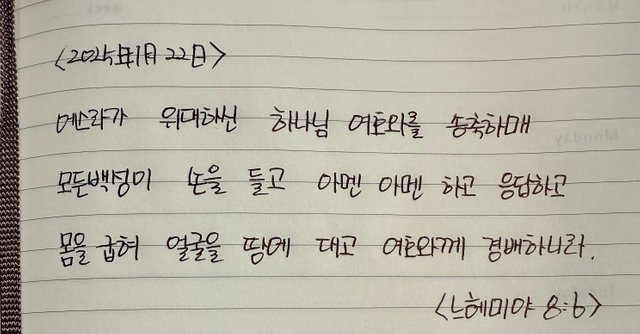 <2025年1月 22日>
에스라가 위대하신 하나님 여호와를 송축하매
모든백성이 손을 들고 아멘 아멘 하고 응답하고
몸을 굽혀 얼굴을 땅에 대고 여호와께 경배하니라.
<느헤미야 8:6>